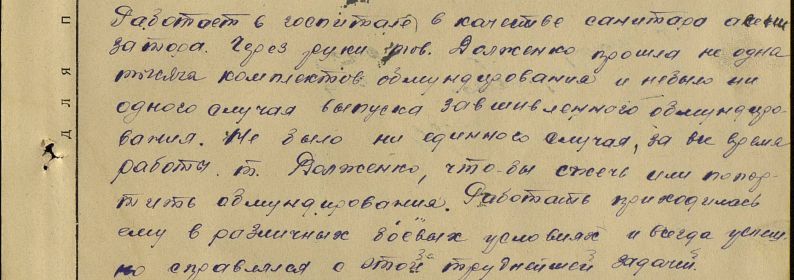 Работает в госпитале в качестве санитара
затора. Через руки тов. Долженко прошла не одна
тысяча комплектов обмундирования и небыло ни
одного случая выпуска завшивленного обмундиро-
вания. Не было ни единного случая, за все время
работы т. Долженко, что-бы сжечь или попор-
тить обмундирования. Работать приходилась
ему в различных боевых условиях и всегда успеш-
но справлялся с этой труднейшей задачей.
для п